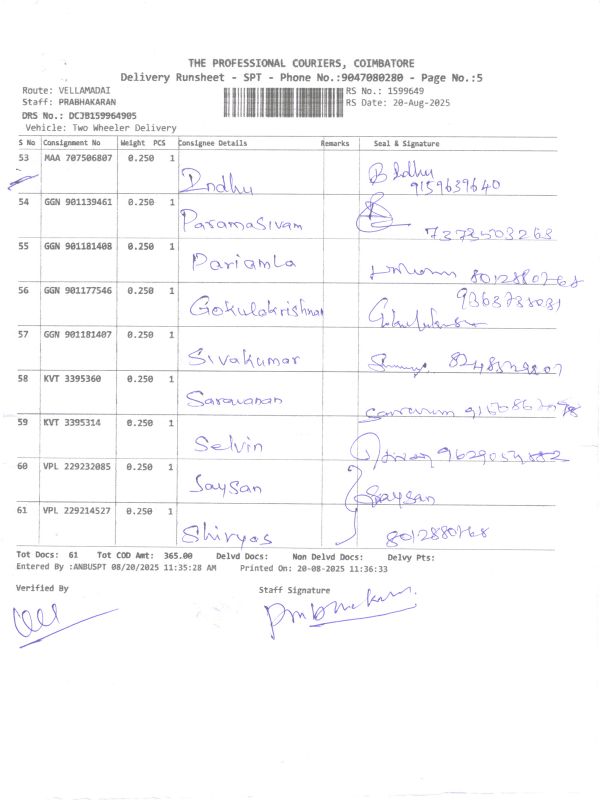 THE PROFESSIONAL COURIERS, COIMBATORE
Delivery Runsheet - SPT - Phone No.:9047080280 - Page No.:5
Route: VELLAMADAI RS No.: 1599649
Staff: PRABHAKARAN RS Date: 20-Aug-2025
DRS No.: DCJB159964905
Vehicle: Two Wheeler Delivery
S No Consignment No Weight PCS Consignee Details Remarks Seal & Signature
53 MAA 707506807 0.250 1 Indhu
9159639640
54 GGN 901139461 0.250 1 Paramasivam
7373503268
55 GGN 901181408 0.250 1 Pariamla
8012880768
56 GGN 901177546 0.250 1 Gokulakrishnan
9363738031
57 GGN 901181407 0.250 1 Sivakumar
58 KVT 3395360 0.250 1 Saravanan
59 KVT 3395314 0.250 1 Selvin
60 VPL 229232085 0.250 1 Saysan Saysan
61 VPL 229214527 0.250 1 Shiryas
8012880768
Tot Docs: 61 Tot COD Amt: 365.00 Delvd Docs: Non Delvd Docs: Delvy Pts:
Entered By :ANBUSPT 08/20/2025 11:35:28 AM Printed On: 20-08-2025 11:36:33
Verified By Staff Signature